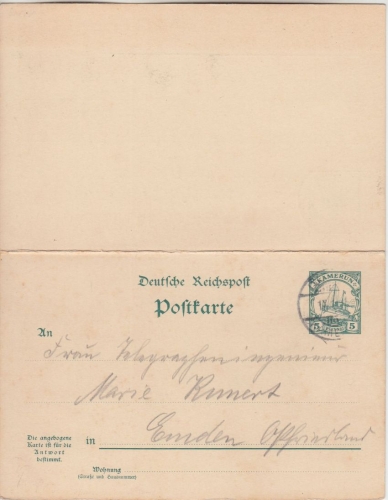 Deutsche Reichspost
KAMERUN
Postkarte
5 PFENNIG 5
An
Frau Telegrapheningenieur
Marie Kunert
Die angebogene
Karte ist für die
Antwort
bestimmt.
in Emden Ostfriesland
Wohnung
(Straße und Hausnummer)